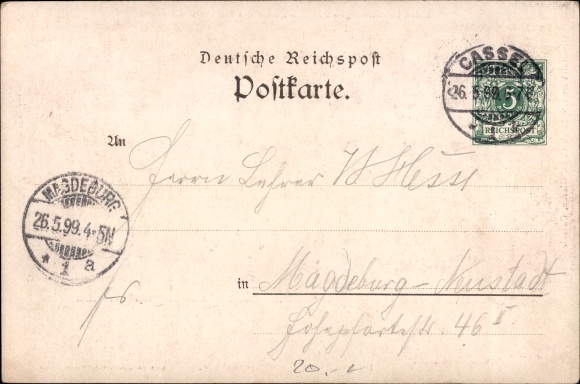 Deutsche Reichspost
Postkarte.
CASSEL
26.5.99. 5-7
5
REICHSPOST
An
Herrn Lehrer W. Hess
MAGDEBURG
26.5.99.4-5N
* 1 a
in Magdeburg-Neustadt
46 II
20.-